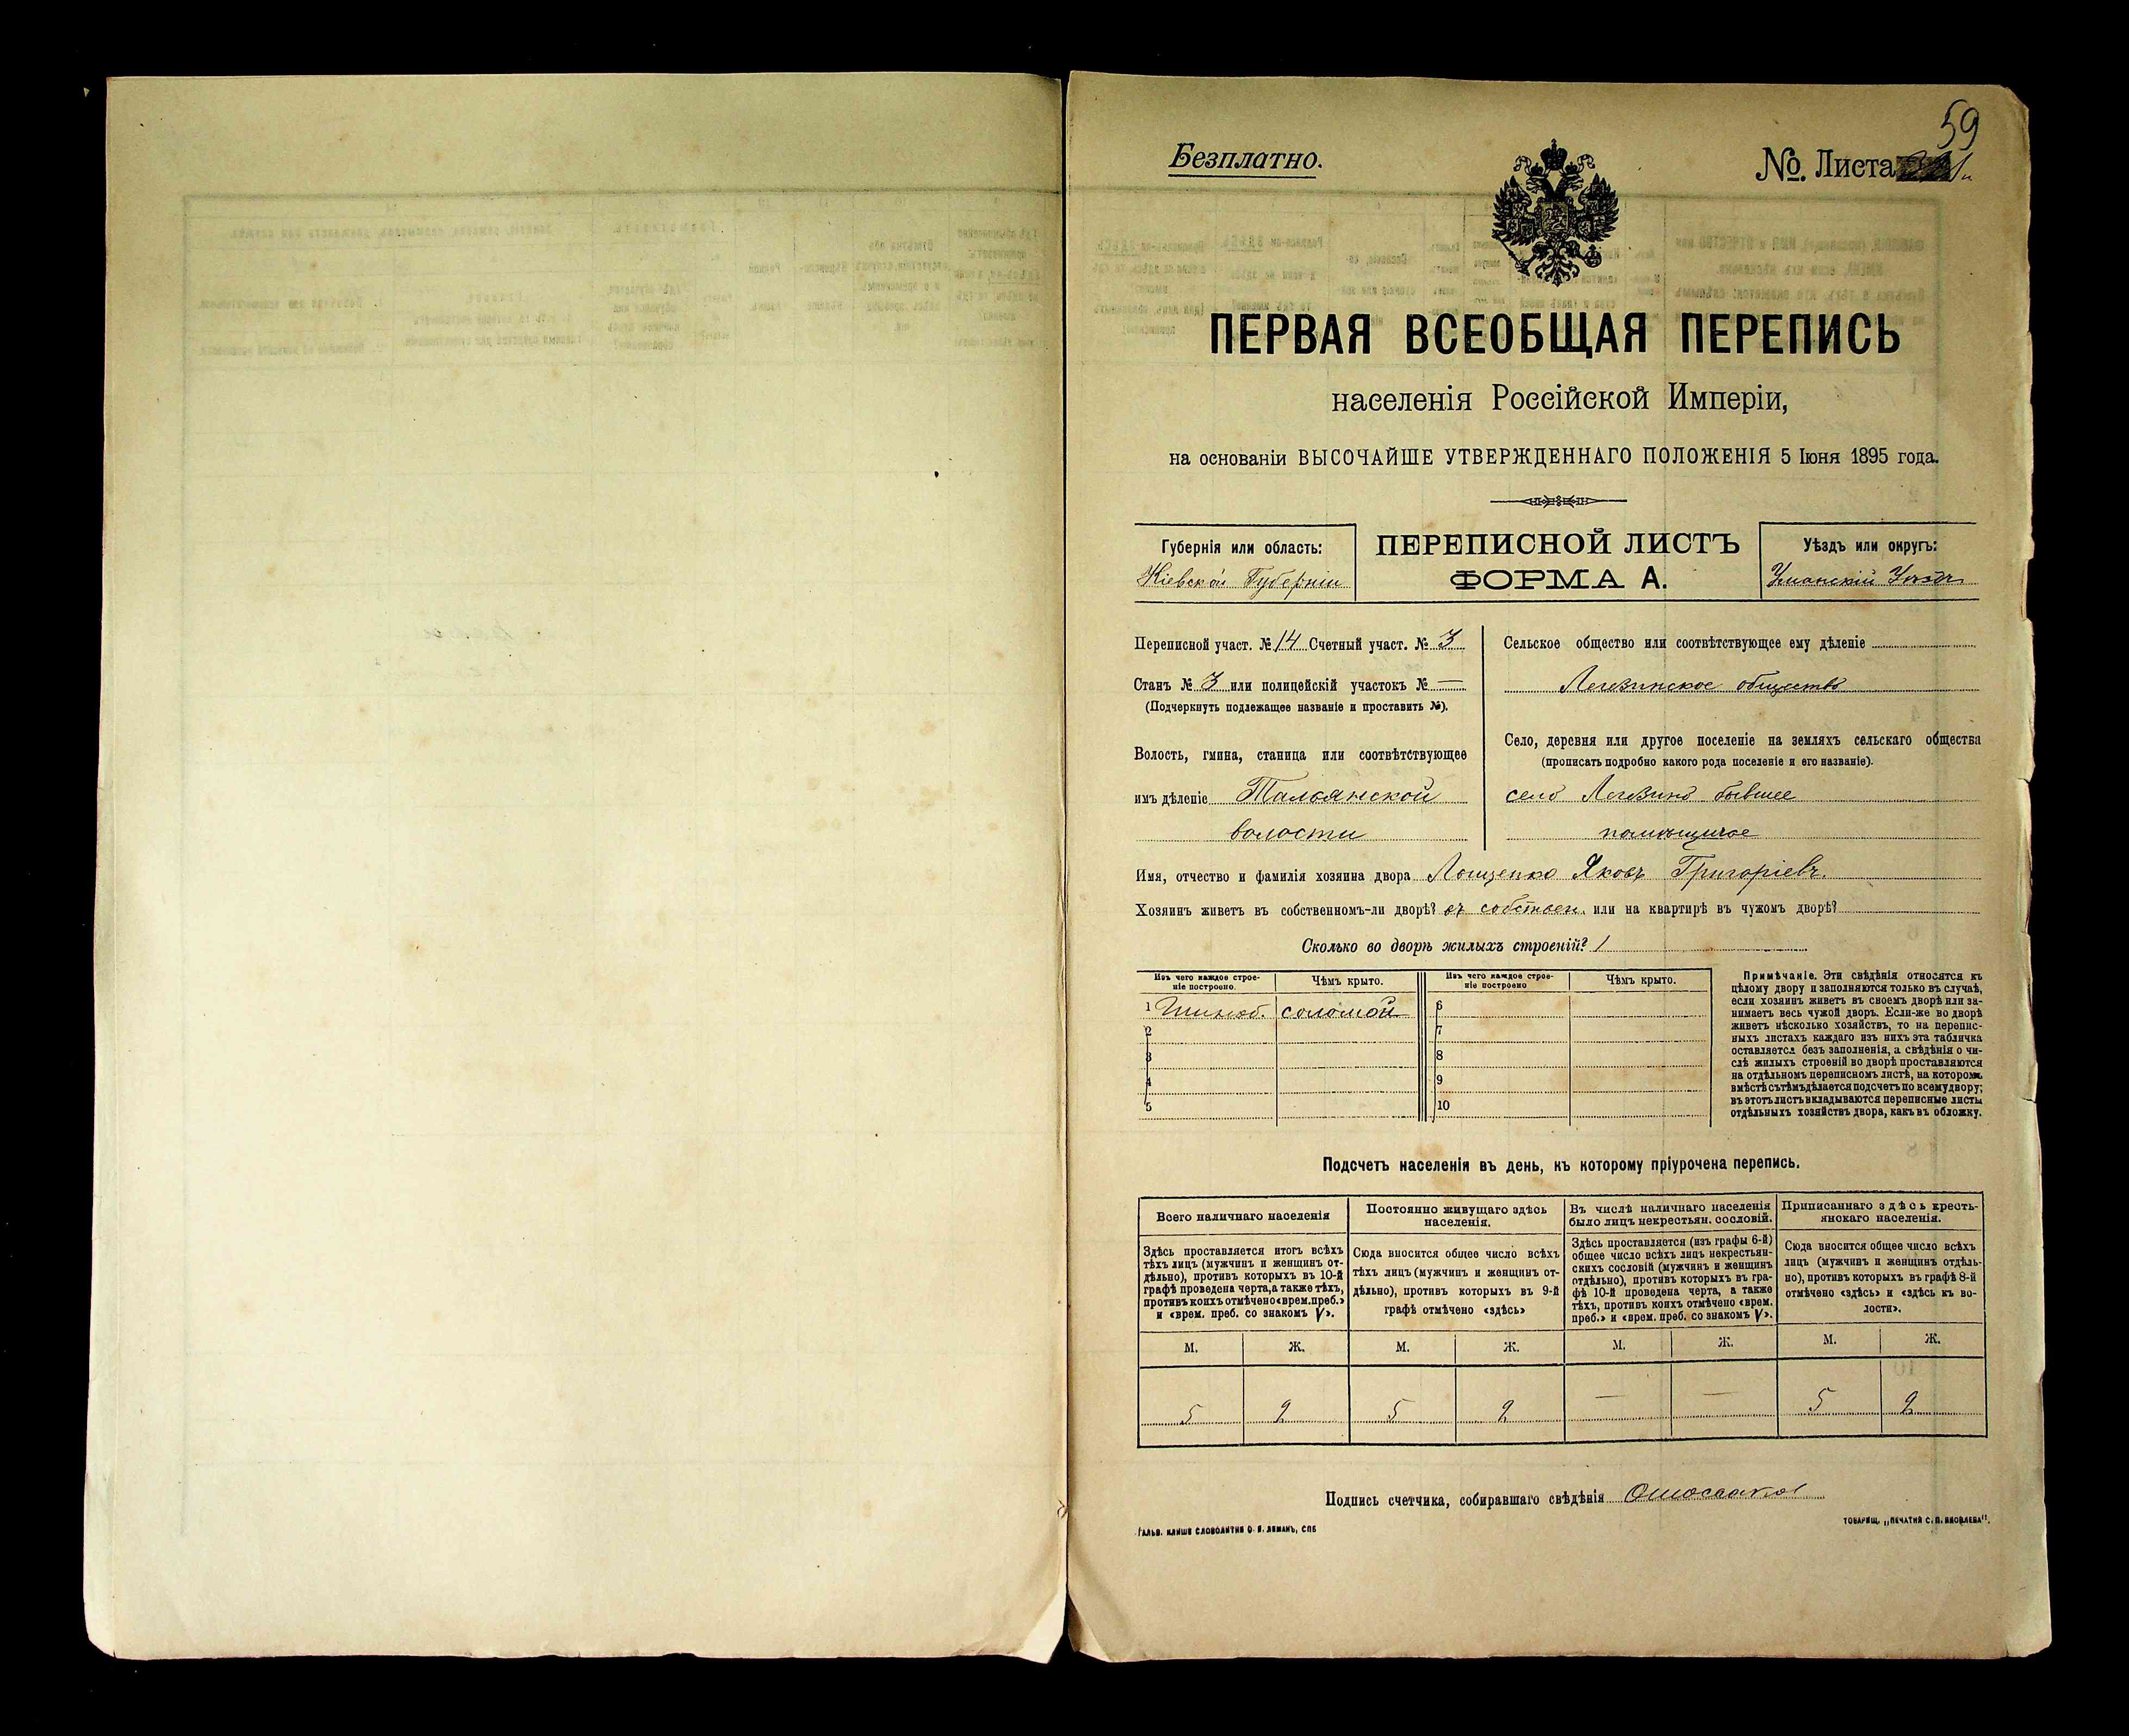 59
Безплатно.
№. Листа
ПЕРВАЯ ВСЕОБЩАЯ ПЕРЕПИСЬ
населенія Россійской Имперіи,
на основаніи ВЫСОЧАЙШЕ УТВЕРЖДЕННАГО ПОЛОЖЕНІЯ 5 Іюня 1895 года.
Губернія или область:
Кіевской Губерніи
ПЕРЕПИСНОЙ ЛИСТЪ
ФОРМА А.
Уѣздъ или округъ:
Уманскій Уѣздъ
Переписной участ. № 14 Счетный участ. № 3
Станъ № 3 или полицейскій участокъ № —
(Подчеркнуть подлежащее названіе и проставить №).
Волость, гмина, станица или соотвѣтствующее
имъ дѣленіе Тальянской
волости
Сельское общество или соотвѣтствующее ему дѣленіе
Легезинское общество
Село, деревня или другое поселеніе на земляхъ сельскаго общества
(прописать подробно какого рода поселеніе и его названіе).
село Легезино бывшее
помѣщичье
Имя, отчество и фамилія хозяина двора Лощенко Яковъ Григоріевъ.
Хозяинъ живетъ въ собственномъ-ли дворѣ? въ собствен. или на квартирѣ въ чужомъ дворѣ?
Сколько во дворѣ жилыхъ строеній? 1
Изъ чего каждое строе-
ніе построено.
Чѣмъ крыто.
Изъ чего каждое строе-
ніе построено
Чѣмъ крыто.
1 соломой 6
2 7
3 8
4 9
5 10
Примѣчаніе. Эти свѣдѣнія относятся къ
цѣлому двору и заполняются только въ случаѣ,
если хозяинъ живетъ въ своемъ дворѣ или за-
нимаетъ весь чужой дворъ. Если-же во дворѣ
живетъ нѣсколько хозяйствъ, то на перепис-
ныхъ листахъ каждаго изъ нихъ эта табличка
оставляется безъ заполненія, а свѣдѣнія о чи-
слѣ жилыхъ строеній во дворѣ проставляются
на отдѣльномъ переписномъ листѣ, на которомъ
вмѣстѣ съ тѣмъ дѣлается подсчетъ по всему двору;
въ этотъ листъ вкладываются переписные листы
отдѣльныхъ хозяйствъ двора, какъ въ обложку.
Подсчетъ населенія въ день, къ которому пріурочена перепись.
Всего наличнаго населенія
Здѣсь проставляется итогъ всѣхъ
тѣхъ лицъ (мужчинъ и женщинъ от-
дѣльно), противъ которыхъ въ 10-й
графѣ проведена черта, а также тѣхъ,
противъ коихъ отмѣчено «врем. преб.»
и «врем. преб. со знакомъ V».
Постоянно живущаго здѣсь
населенія.
Сюда вносится общее число всѣхъ
тѣхъ лицъ (мужчинъ и женщинъ от-
дѣльно), противъ которыхъ въ 9-й
графѣ отмѣчено «здѣсь»
Въ числѣ наличнаго населенія
было лицъ некрестьян. сословій.
Здѣсь проставляется (изъ графы 6-й)
общее число всѣхъ лицъ некрестьян-
скихъ сословій (мужчинъ и женщинъ
отдѣльно), противъ которыхъ въ гра-
фѣ 10-й проведена черта, а также
тѣхъ, противъ коихъ отмѣчено «врем.
преб.» и «врем. преб. со знакомъ V».
Приписаннаго здѣсь кресть-
янскаго населенія.
Сюда вносится общее число всѣхъ
лицъ (мужчинъ и женщинъ отдѣль-
но), противъ которыхъ въ графѣ 8-й
отмѣчено «здѣсь» и «здѣсь къ во-
лости».
М. Ж. М. Ж. М. Ж. М. Ж.
5 2 5 2 — — 5 2
Подпись счетчика, собиравшаго свѣдѣнія
ГАЛЬВ. КЛИШЕ СЛОВОЛИТНИ О. И. ЛЕМАНЪ, СПБ
ТОВАРИЩ. „ПЕЧАТНЯ С. П. ЯКОВЛЕВА".